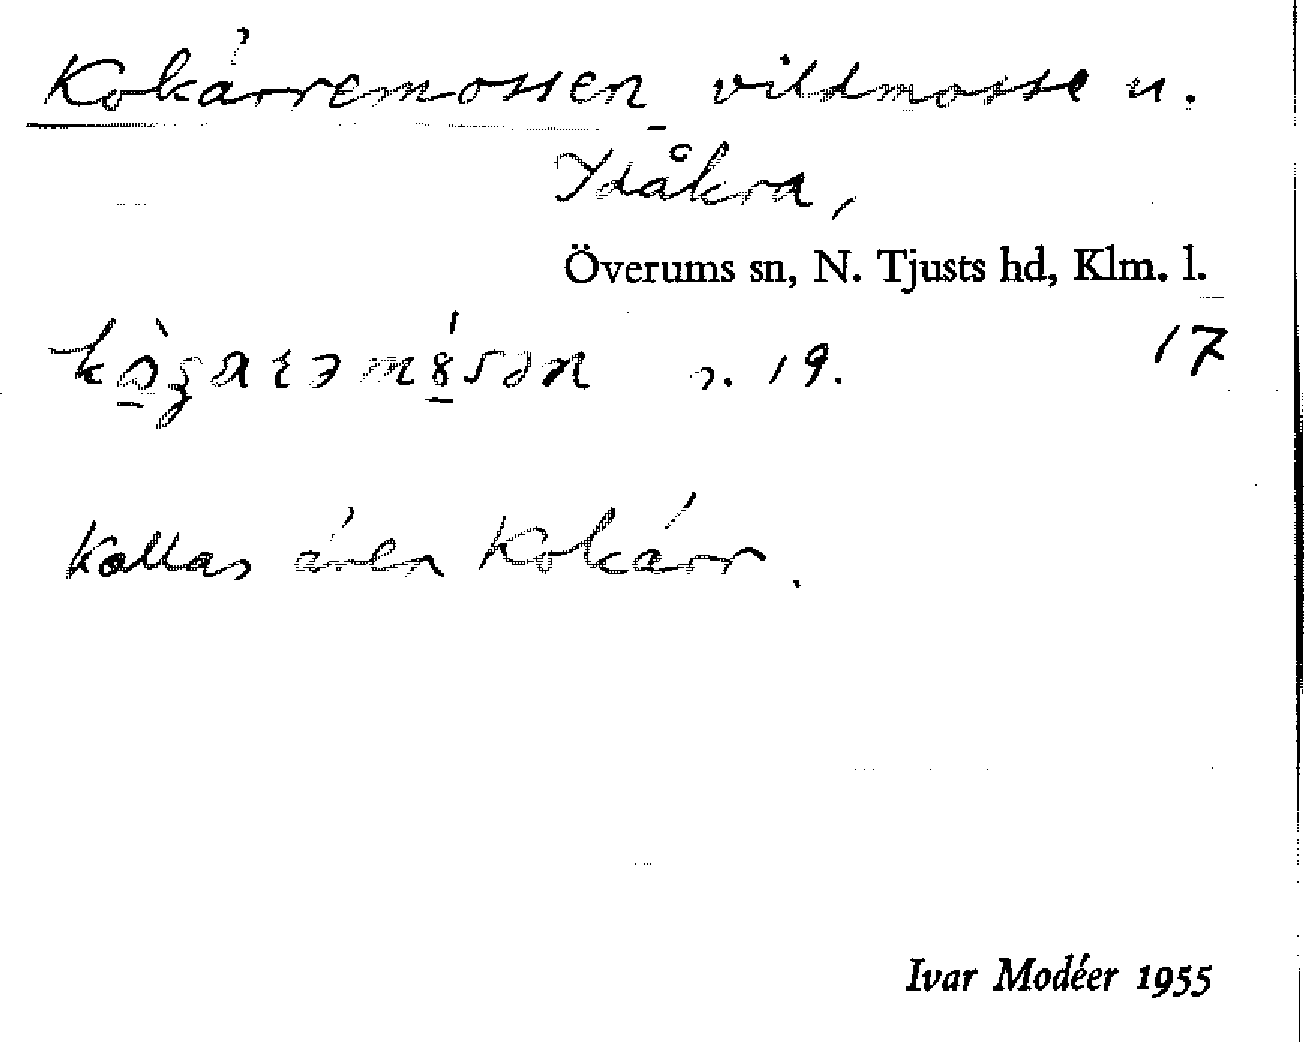 Kokärremossen vildmosse u.
Ydåkra,
Överums sn, N. Tjusts hd, Klm. l.
19. 17
Kallas även Kokärr.
Ivar Modéer 1955